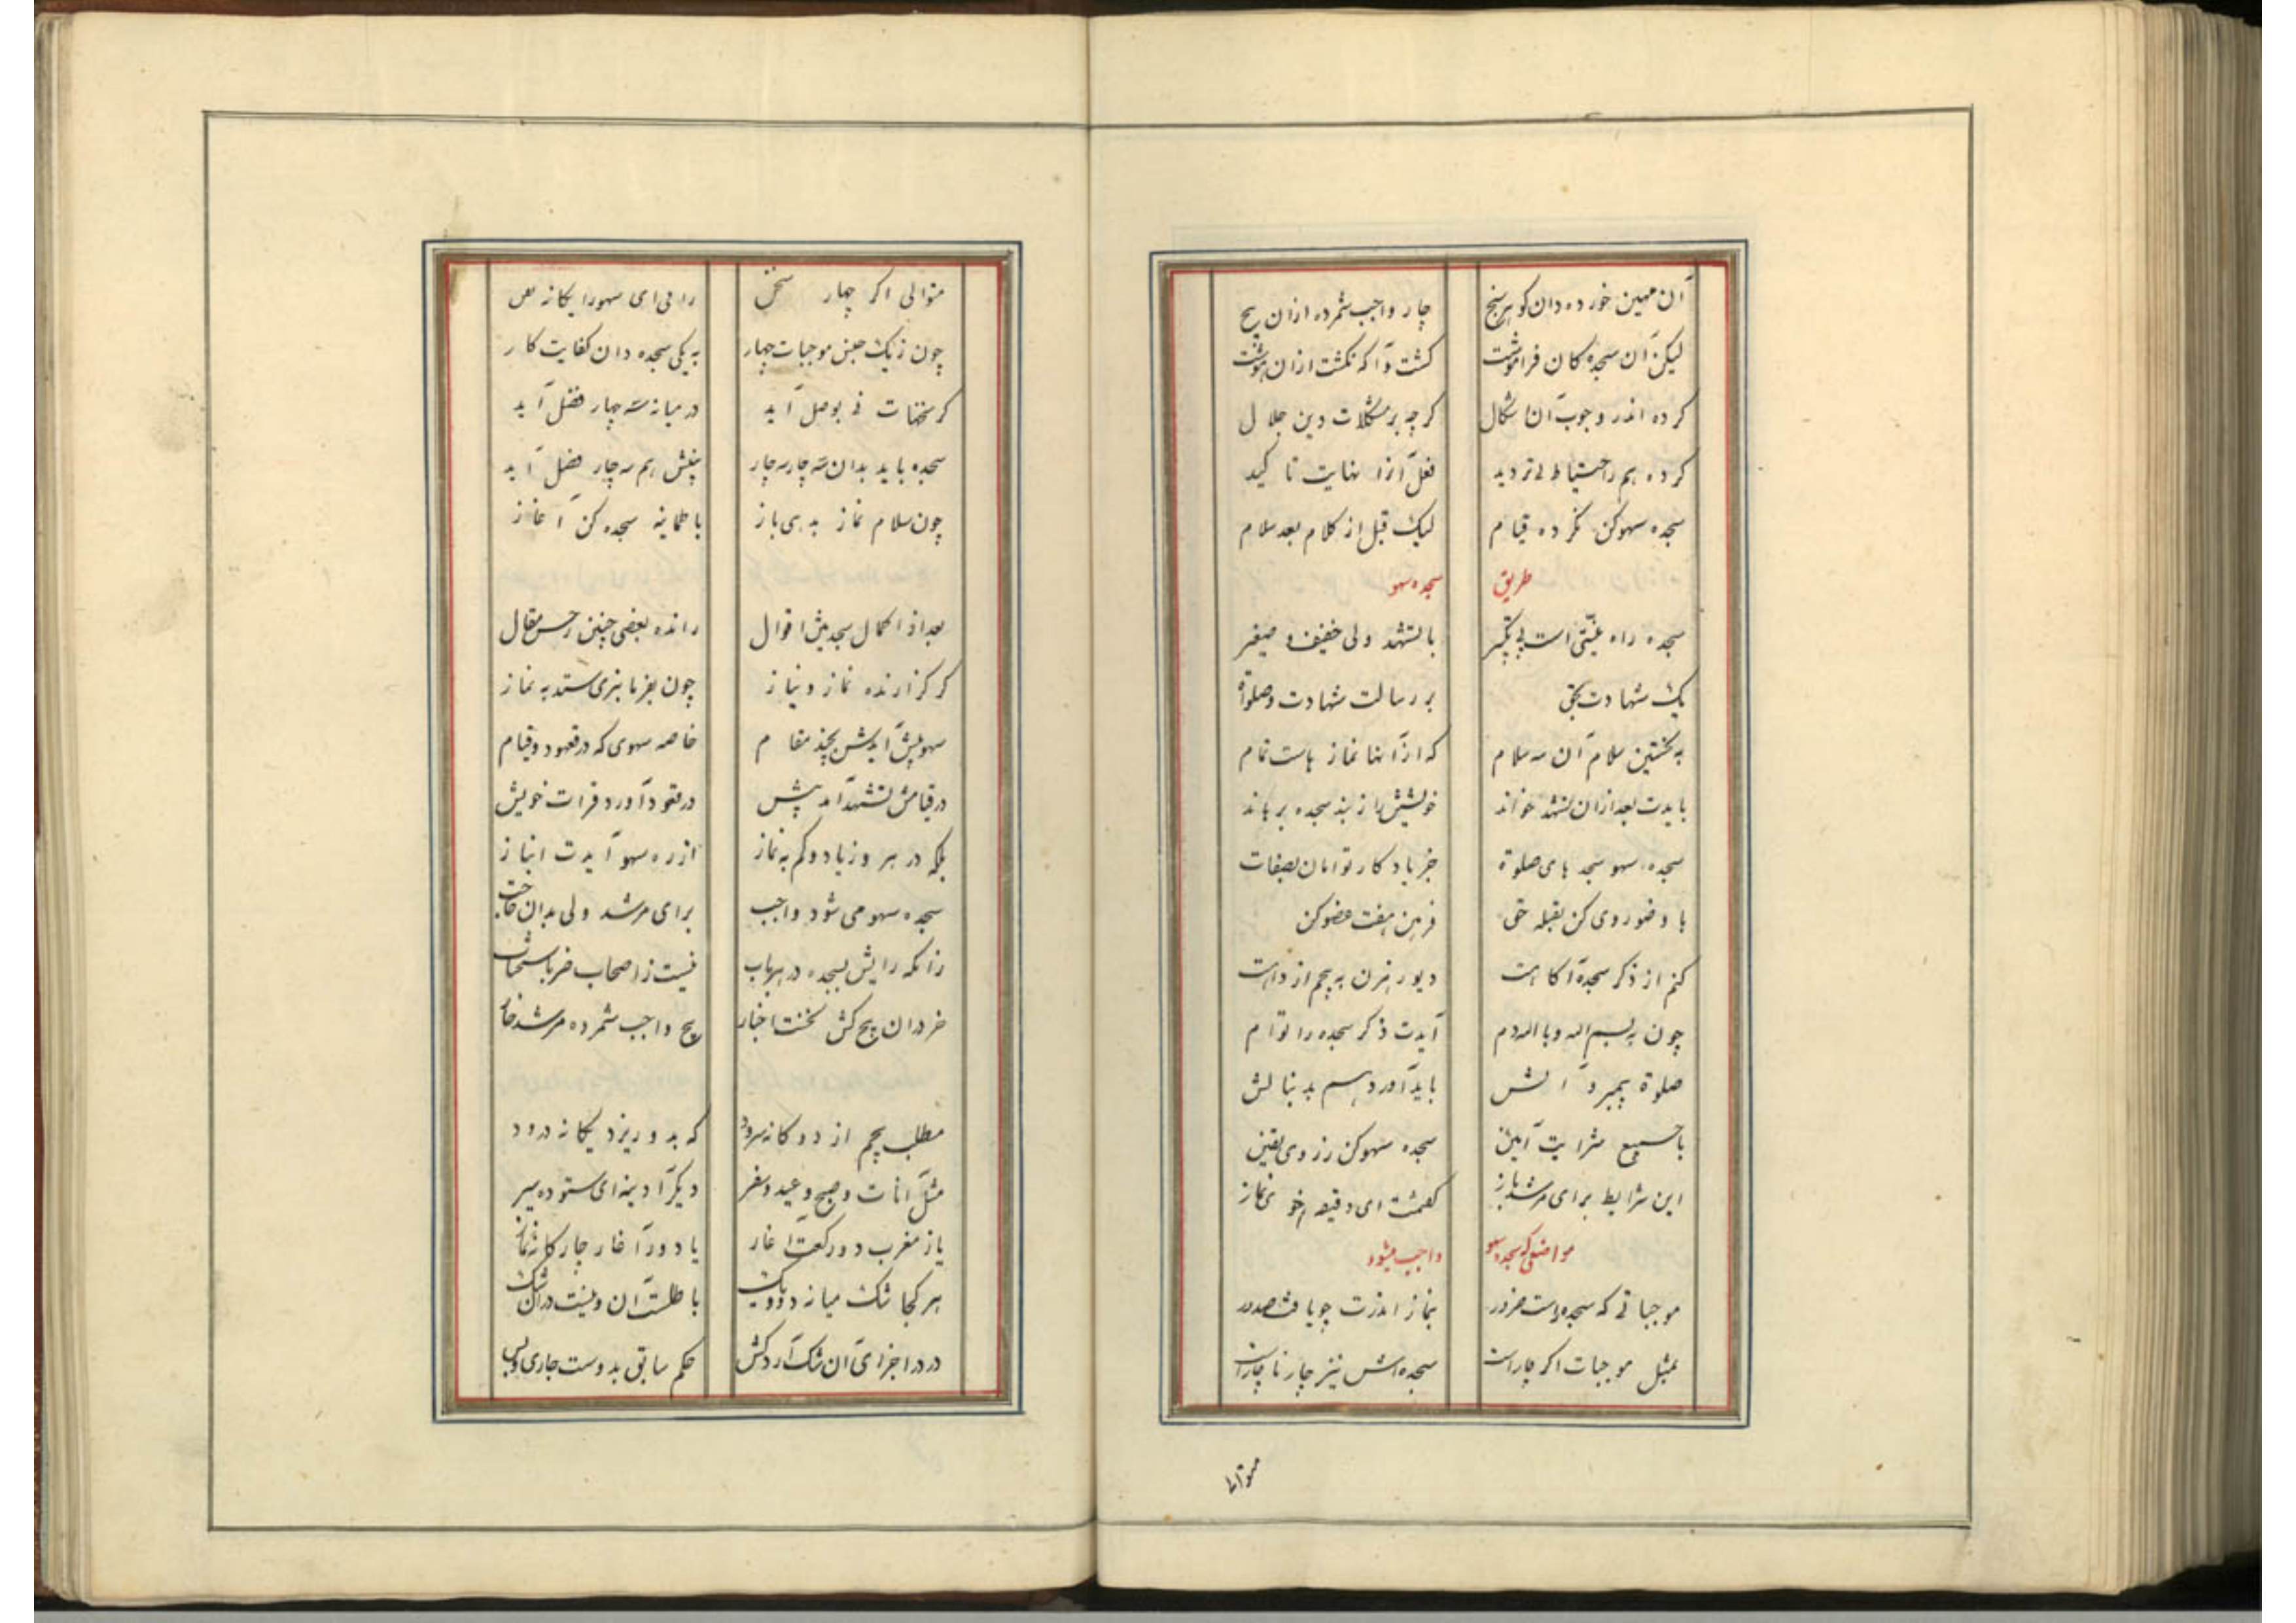 آن مهین خورده دان کوهر سنج
چار واجب شمرده ازان پنج
لیکن آن سجده کان فراموشت
کشت و آنکه نکشت ازان هوشت
کرده اندر وجوب آن اشکال
کرچه بر مشکلات دین حلال
کرده هم ز احتیاط بی تردید
فعل آنرا نهایت تاکید
سجده سهو کن نکرده قیام
لیک قبل از کلام بعد سلام
طریق سجده سهو
سجده راه نیتی است بی تکبیر
با تشهد ولی خفیف و صغیر
یک شهادت بحق
بر رسالت شهادت و صلوة
به نخستین سلام آن سه سلام
که ازانها نماز هاست تمام
بایدت بعد ازان تشهد خواند
خویشتن را ز بند سجده برهاند
سجده سهو سجدهای صلوة
جز بادکار توامان بصفات
با وضو روی کن بقبله حق
فرش هفت عضو کن
کنم از ذکر سجده آکاهت
دیو رهزن به پیچم از راهت
چون به بسم الله و بالله دم
آیدت ذکر سجده را توام
صلوة پیمبر و آلش
باید آورد هم بدنبالش
با جمیع شرایط آیین
سجده سهو کن ز روی یقین
این شرایط برای مرشد باز
کفتمت ای دقیقه نماز
مواضعی که سجده سهو واجب میشود
موجباتی که سجده راست ضرور
بنماز اندرت چو یافت صدور
بمثل موجبات اکر چارست
سجده اش نیز چار ناچارست
متوالی
متوالی اکر چهار سخن
رانی ای سهو را یکانه
چون ز یک جنس موجبات چهار
به یکی سجده دان کفایت کار
کر سخنهات فی بوصل آید
در میانه سه چهار فصل آید
سجده باید بدان سه چار سه چار
بینش هم سه چار فصل آید
چون سلام نماز بدهی باز
با طمانینه سجده کن آغاز
بعد از اکمال سجده بیش اقوال
رانده بعضی چنین ز حسن مقال
کر کزارنده نماز و نیاز
چون بفرمانبری ستد به نماز
سهو پیش آیدش بچند مقام
خاصه سهوی که در قعود و قیام
در قیامش تشهد آید پیش
در قعود آورد قرات خویش
بلکه در هر زیاد و کم به نماز
از ره سهو آیدت انباز
سجده سهو می شود واجب
برای مرشد ولی بدان
زانکه رایش بسجده در هر باب
نیست ز اصحاب جز باستحباب
جز دران پنج کش نخست اخبار
پنج واجب شمرده مرشد
مطلب پنجم از دو کانه سرود
که بدو ریزد یکانه درود
مثل آیات و صبح و عید و سفر
دیکر آدینه ای ستوده سیر
یا ز مغرب دو رکعت آغاز
یا دو در آغاز چار کانه نماز
هر کجا شک میانه دو و یک
باطلست آن و نیست دران شک
در در اجزای آن شک آرد کس
حکم سابق بدوست جاری و بس